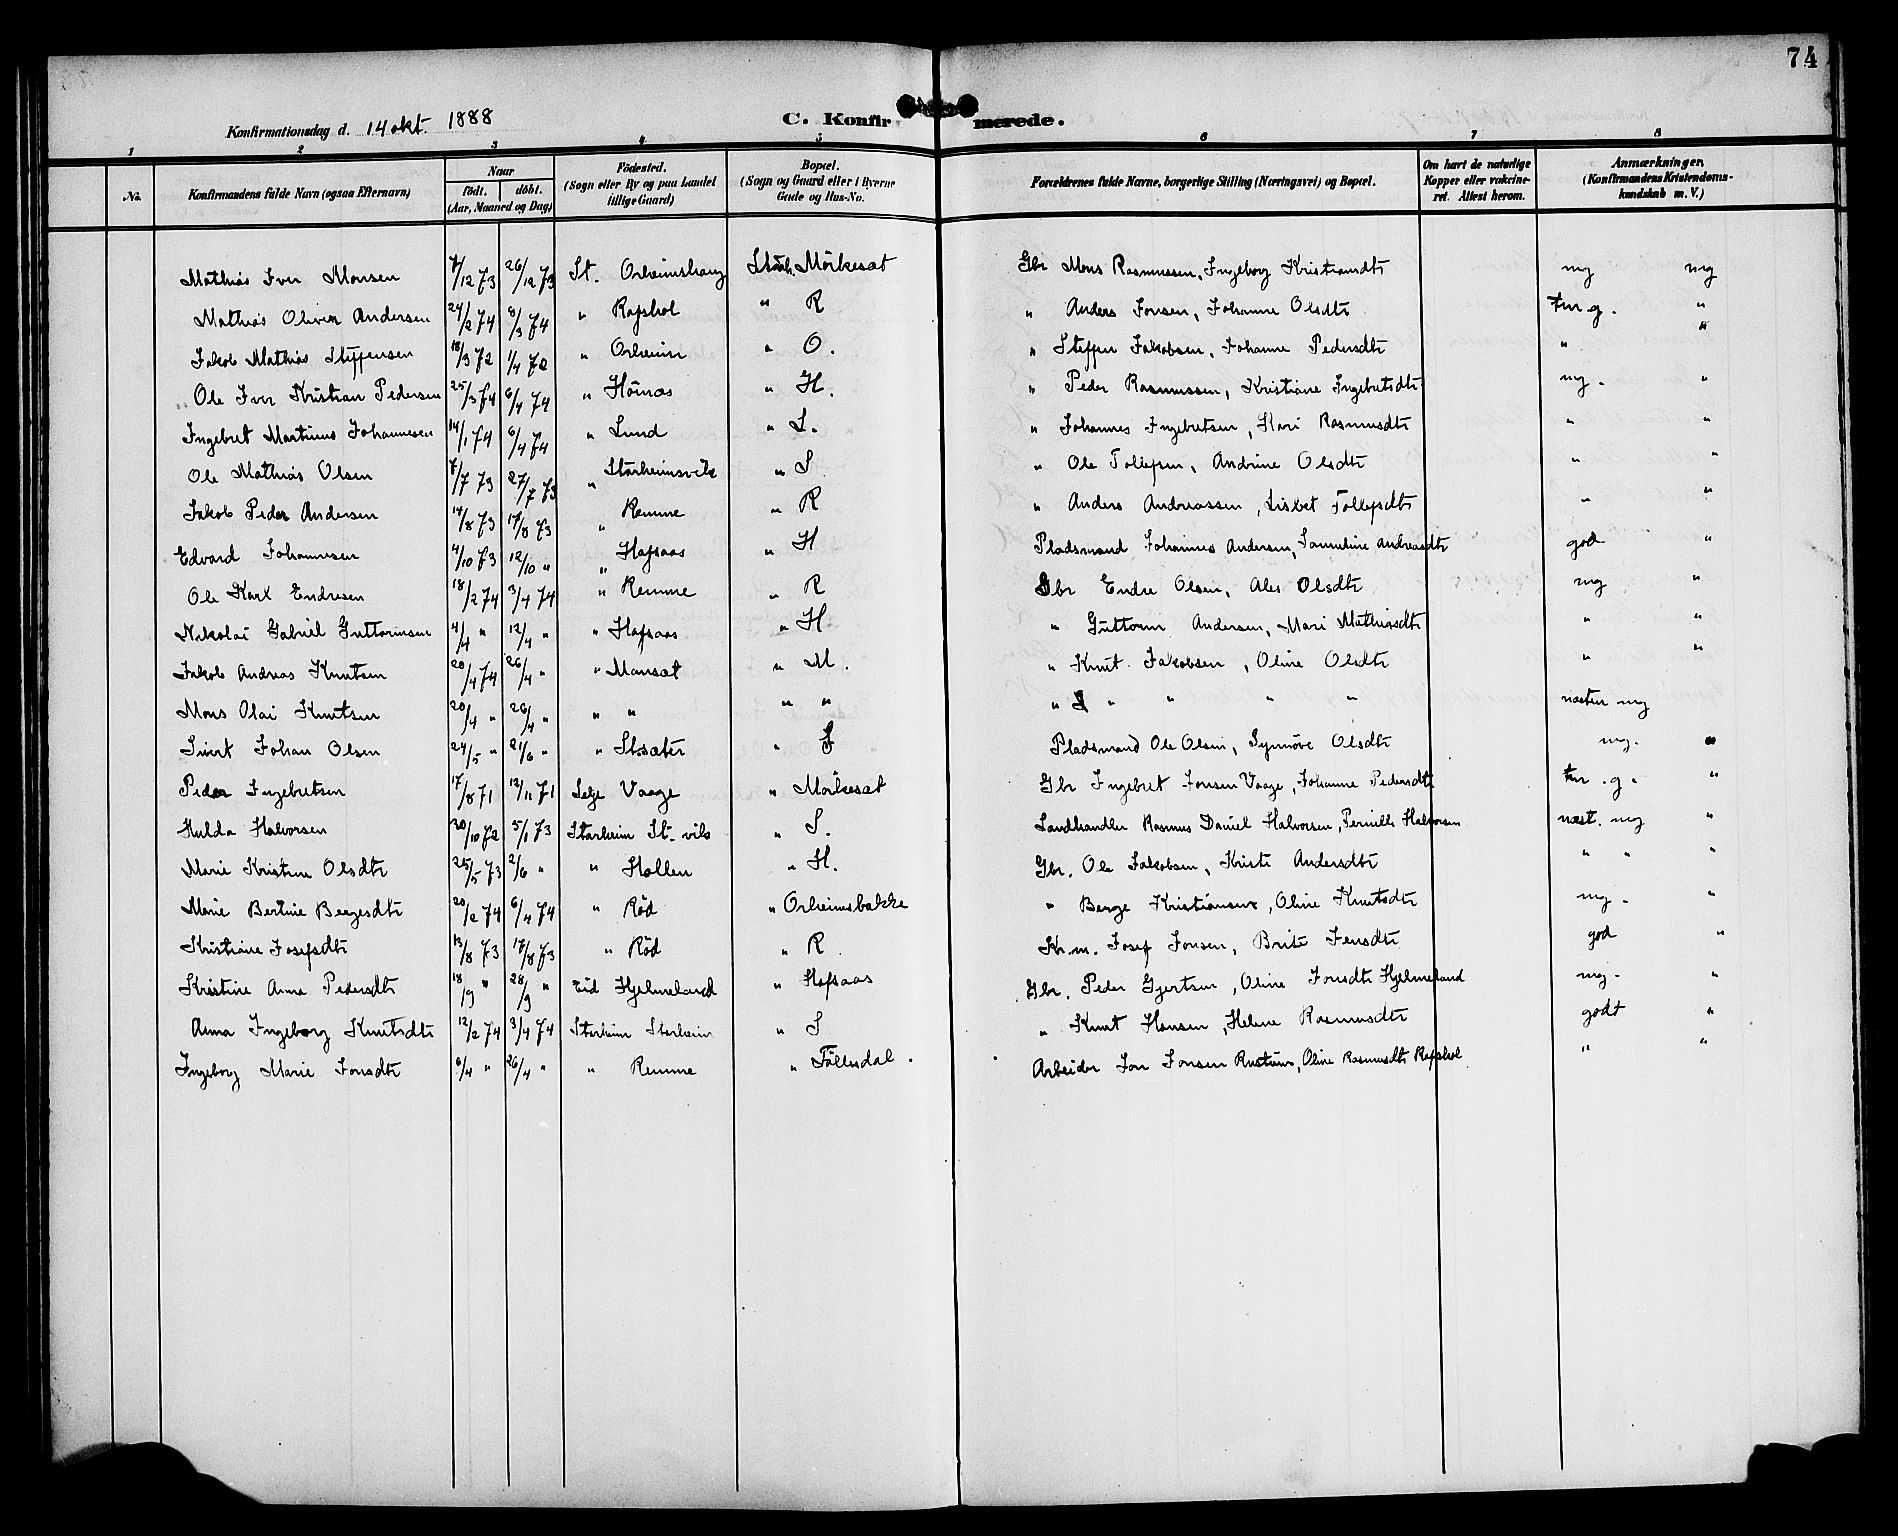 74
Konfirmationsdag d. 14 okt. 1888 C. Konfirmerede.
1 2 3 4 5 6 7 8
No. Konfirmandens fulde Navn (ogsaa Efternavn) Naar født. døbt. (Aar, Maaned og Dag) Födested. (Sogn eller By og paa Landet tillige Gaard) Bopæl. (Sogn og Gaard eller i Byerne Gade og Hus-No. Forældrenes fulde Navne, borgerlige Stilling (Næringsvei) og Bopæl. Om havt de naturlige Kopper eller vakcineret. Attest herom. Anmærkninger. (Konfirmandens Kristendomskundskab m. V.)
Mathias Iver Monsen 7/12 73 26/12 73 St. Orheimshaug Starh. Mörkesæt Gbr Mons Rasmussen, Ingeborg Kristiansdtr mg mg
Mathias Oliver Andersen 24/2 74 8/3 74 " Rapshol " R " Anders Jonsen, Johanne Olsdtr tm g. "
Jakob Mathias Steffensen 18/3 72 1/4 72 " Orheim " O. " Steffen Jakobsen, Johanne Pedersdtr " "
Ole Iver Kristian Pedersen 25/3 74 6/4 74 " Hönæs " H. " Peder Rasmussen, Kristiane Ingebretsdtr mg. "
Ingebret Martinus Johannesen 14/1 74 6/4 74 " Lund " L. " Johannes Ingebretsen, Kari Rasmusdtr " "
Ole Mathias Olsen 7/7 73 27/7 73 " Starheimsvik " S. " Ole Tollefsen, Andrine Olsdtr " "
Jakob Peder Andersen 14/8 73 17/8 73 " Remme " R " Anders Andreassen, Lisbet Tollefsdtr " "
Edvard Johannesen 4/10 73 12/10 " " Hafsaas " H Pladsmand Johannes Andersen, Janneline Andreasdtr god "
Ole Karl Endresen 18/2 74 3/4 74 " Remme " R Gbr Endre Olsen, Ales Olsdtr mg "
Nikolai Gabriel Guttormsen 4/4 " 12/4 " " Hafsaas " H " Guttorm Andersen, Mari Mathiasdtr " "
Jakob Andreas Knutsen 20/4 74 26/4 " " Mansæt " M. " Knut Jakobsen, Oline Olsdtr " "
Mons Olai Knutsen 20/4 " 26/4 " " " " " " " " " " næsten mg
Sivert Johan Olsen 24/5 " 21/6 " " Stsæter " S Pladsmand Ole Olsen, Synnöve Olsdtr mg. "
Peder Ingebretsen 17/8 71 12/11 71 Selje Vaage " Mörkesæt Gbr Ingebret Jonsen Vaage, Johanne Pedersdtr tm. g. "
Hulda Halvorsen 20/10 72 5/1 73 Starheim St. vik " S. Landhandler Rasmus Daniel Halvorsen, Pernille Halvorsen næst. mg "
Marie Kristine Olsdtr 25/5 73 2/6 " " Hollen " H. Gbr. Ole Jakobsen, Kristi Andersdtr " " "
Marie Bertine Bergesdtr 20/2 74 6/4 74 " Röd " Orheimsbakke " Berge Kristiansen, Oline Knutsdtr mg. "
Kristiane Josefsdtr 13/8 73 17/8 73 " Röd " R Kr.m. Josef Jonsen, Brite Jensdtr god "
Kristine Anna Pedersdtr 18/9 " 28/9 " Eid Hjelmeland " Hafsaas Gbr. Peder Gjertsen, Oline Jonsdtr Hjelmeland mg. "
Anna Ingeborg Knutsdtr 12/2 74 3/4 74 Starheim Starheim " S " Knut Hansen, Helene Rasmusdtr godt "
Ingeborg Marie Jonsdtr 6/4 " 26/4 " " Remme " Töllesdal. Arbeider Jon Jonsen, Oline Rasmusdtr Rapshol " "